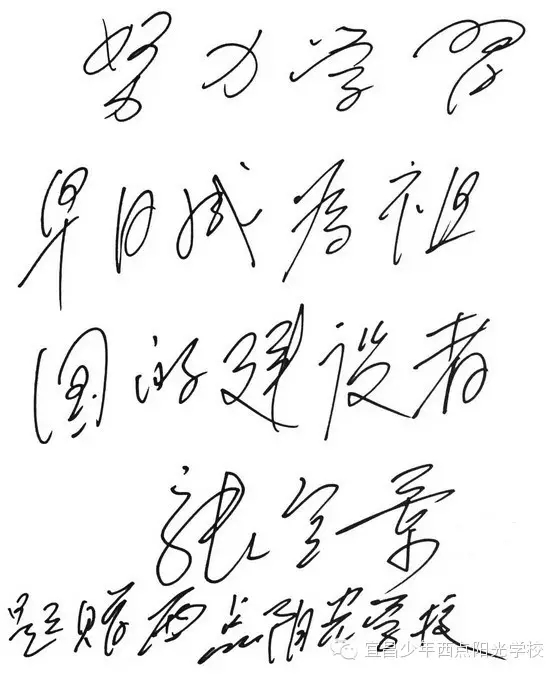 努力学習
早日成为祖
国的建设者
张全景
题赠西点阳光学校
宜昌少年西点阳光学校